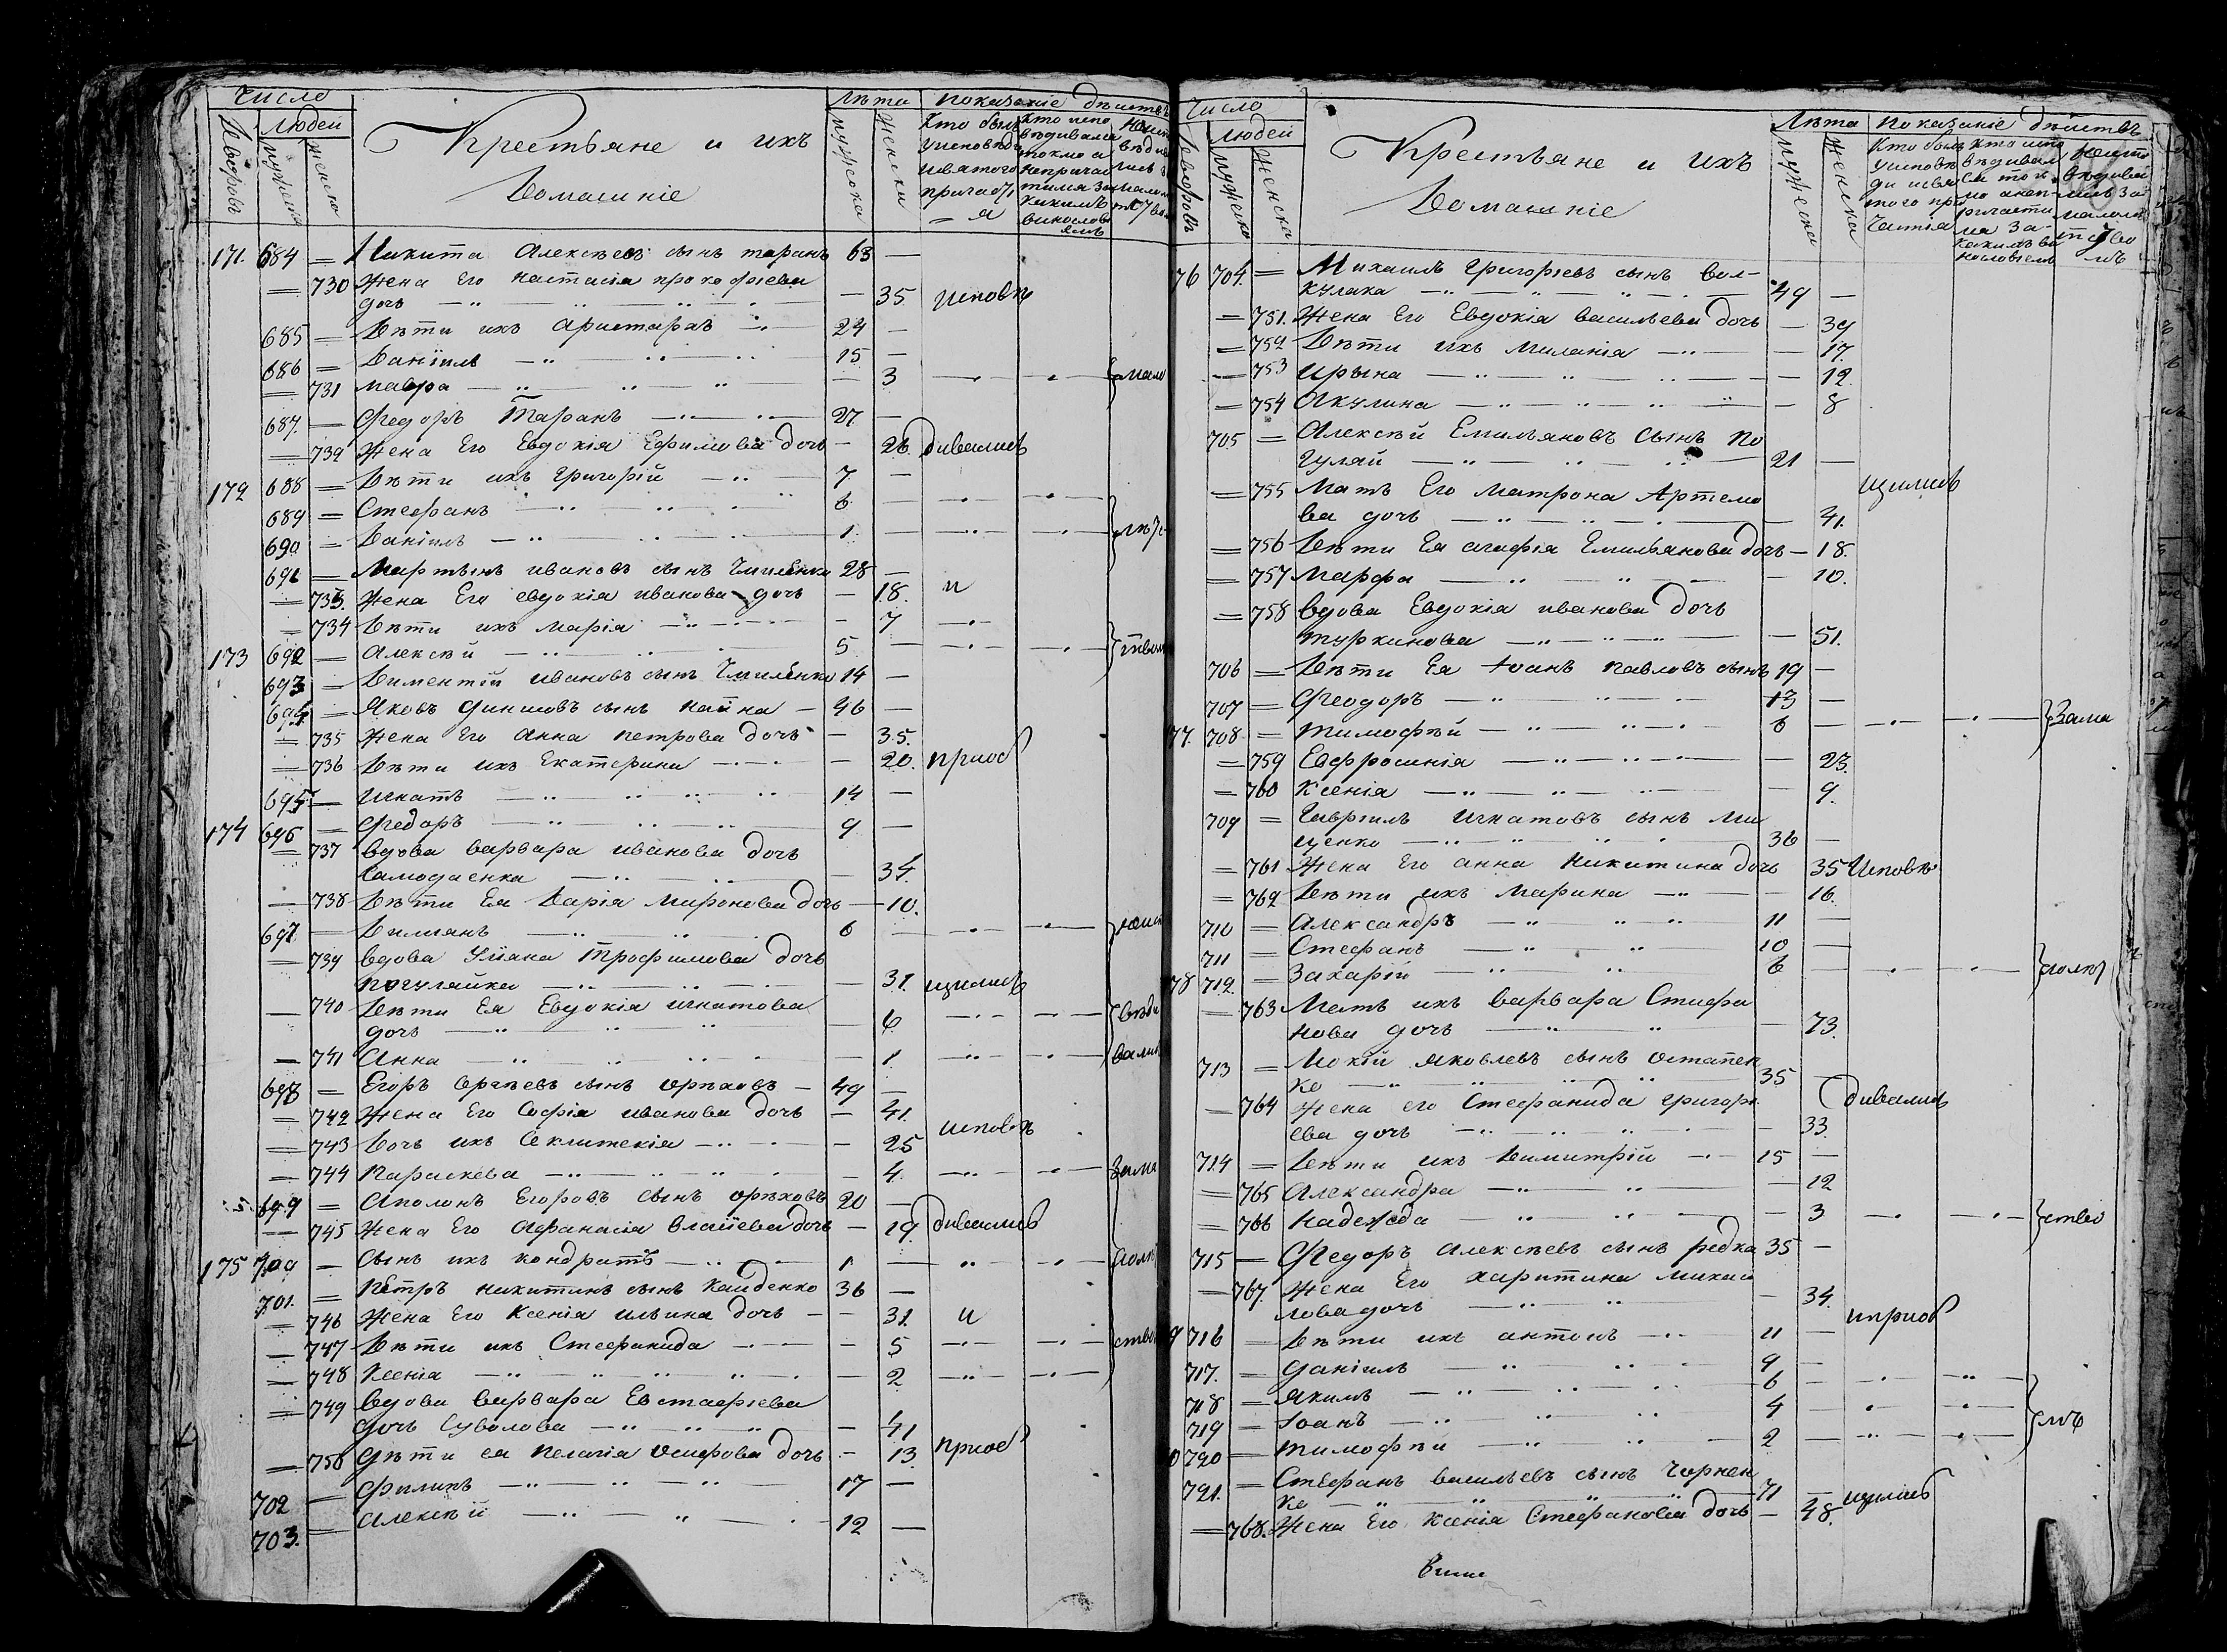 Число
Людей
Дворовъ
мужеска
женска
Крестьяне и ихъ
Домашніе
Лѣта
мужска
женска
показаніе дѣиствъ
Кто былъ
уисповѣд
исвятого
причаст
= я
Кто испо
вѣдивался
токмо а
непричас
тился За
какимъ
винослов
іемъ
171. 684 = Никита Алексѣевъ сынъ таранъ 63 —
— 730 Жена Его настасія прокофіева
дочь — 35 исповѣ
685 — Дѣти ихъ Аристархъ 24 —
686 — Даніилъ 15 —
— 731 мавра — 3 мало
687. — Федоръ Таранъ 27 —
— 732 Жена Его Евдокія Ефимова дочь — 26 дивались
172 688 — Дѣти ихъ Григорій 7 —
689 — Стефанъ 6
690 — Даніилъ 1 лѣт
691 — Мартынъ ивановъ сынъ 28 —
— 733. Жена Его евдокія иванова дочь — 18. и
— 734 Дѣти ихъ марія — 7
173 692 — Алексѣй 5 —
693 — Диментій ивановъ сынъ 14 —
694 — Яковъ сынъ 46 —
— 735 Жена Его Анна петрова дочь — 35.
— 736 Дѣти ихъ Екатерина — 20. приоб
695 — Игнатъ 14 —
174 696 — Федоръ 9 —
— 737 вдова варвара иванова дочь
— 34.
— 738 Дѣти Ея Дарія Миронова дочь — 10.
697. — 6
— 739 вдова Уліана Трофимова дочь
погуляйка — 31. щились
— 740 Дѣти Ея Евдокія игнатова
дочь — 6 вѣди
— 741 Анна — 1. вали
698 — Егоръ сынъ — 49 —
— 742 Жена Его Софія иванова дочь — 41.
— 743 Дочь ихъ Секлитекія — 25 исповѣ
— 744 параскева — 4. Зама
699 = Аполонъ Егоровъ сынъ орѣховъ 20 —
— 745 Жена Его Афанасія дочь — 19. дивались
175 700 — Сынъ ихъ кондратъ 1 — лолѣ
701. = Петръ никитинъ сынъ Кайденко 36 —
— 746 Жена Его Ксенія ильина дочь — 31. и
— 747 Дѣти ихъ Стефанида — 5 ство
— 748 Ксенія — 2
— 749 вдова варвара Евстафіева
дочь Суволова — 41
— 750 Дѣти ея пелагія осифова дочь — 13. приоб
702 — филипъ 17 —
703. — алексѣй 12 —
Число
Людей
мужеска
женска
Крестьяне и ихъ
Домашніе
Лѣта
мужеска
женска
показаніе дѣиствъ
76 704. = Михаилъ Григоріевъ сынъ вол-
кулака 49 —
= 751. Жена Его Евдокія васильева дочь — 39
= 752 Дѣти ихъ миланія — 17.
— 753 ирына — 12.
= 754 Акулина — 8
705 = Алексѣй Емильяновъ сынъ по
гуляй 21 —
= 755 Мать Его матрона Артемо
ва дочь — 41. щились
= 756 Дѣти Ея агафія Емильянова дочь — 18.
= 757 марфа — 10.
= 758 вдова Евдокія иванова дочь
туркинова — 51.
706 = Дѣти Ея Іоанъ павловъ сынъ 19 —
707 = Феодоръ 13 —
77. 708 = тимофѣй 6 — Зама
= 759 Евфросинія — 23.
= 760 Ксенія — 9.
709 = Гавріилъ игнатовъ сынъ ми
щенко 36 —
= 761 Жена Его анна никитина дочь 35 исповѣ
= 762 Дѣти ихъ марина — 16.
710 = Александръ 11 —
711 = Стефанъ 10 —
78 712. — Захарій 6 — лолѣт
— 763 Мать ихъ варвара Стефа
нова дочь — 73.
713 = Мокій яковлевъ сынъ остапен
ко 35 —
— 764 Жена его Стефанида григорі
ева дочь — 33. дивались
714 = Дѣти ихъ Димитрій 15 —
— 765 Александра — 12
— 766 Надежда — 3 ство
715 — Федоръ Алексѣевъ сынъ редка 35 —
— 767. Жена Его харитина михаи
лова дочь — 34. иприоб
9 716 = Дѣти ихъ антонъ 11 —
717. = Даніилъ 9 —
718 = якимъ 6 —
719 = Іоанъ 4 — мъ
0 720 — тимофѣй 2 —
721. = Стефанъ васильевъ сынъ Чернен
ко 71 — щились
— 768. Жена Его Ксенія Стефанова дочь — 48.